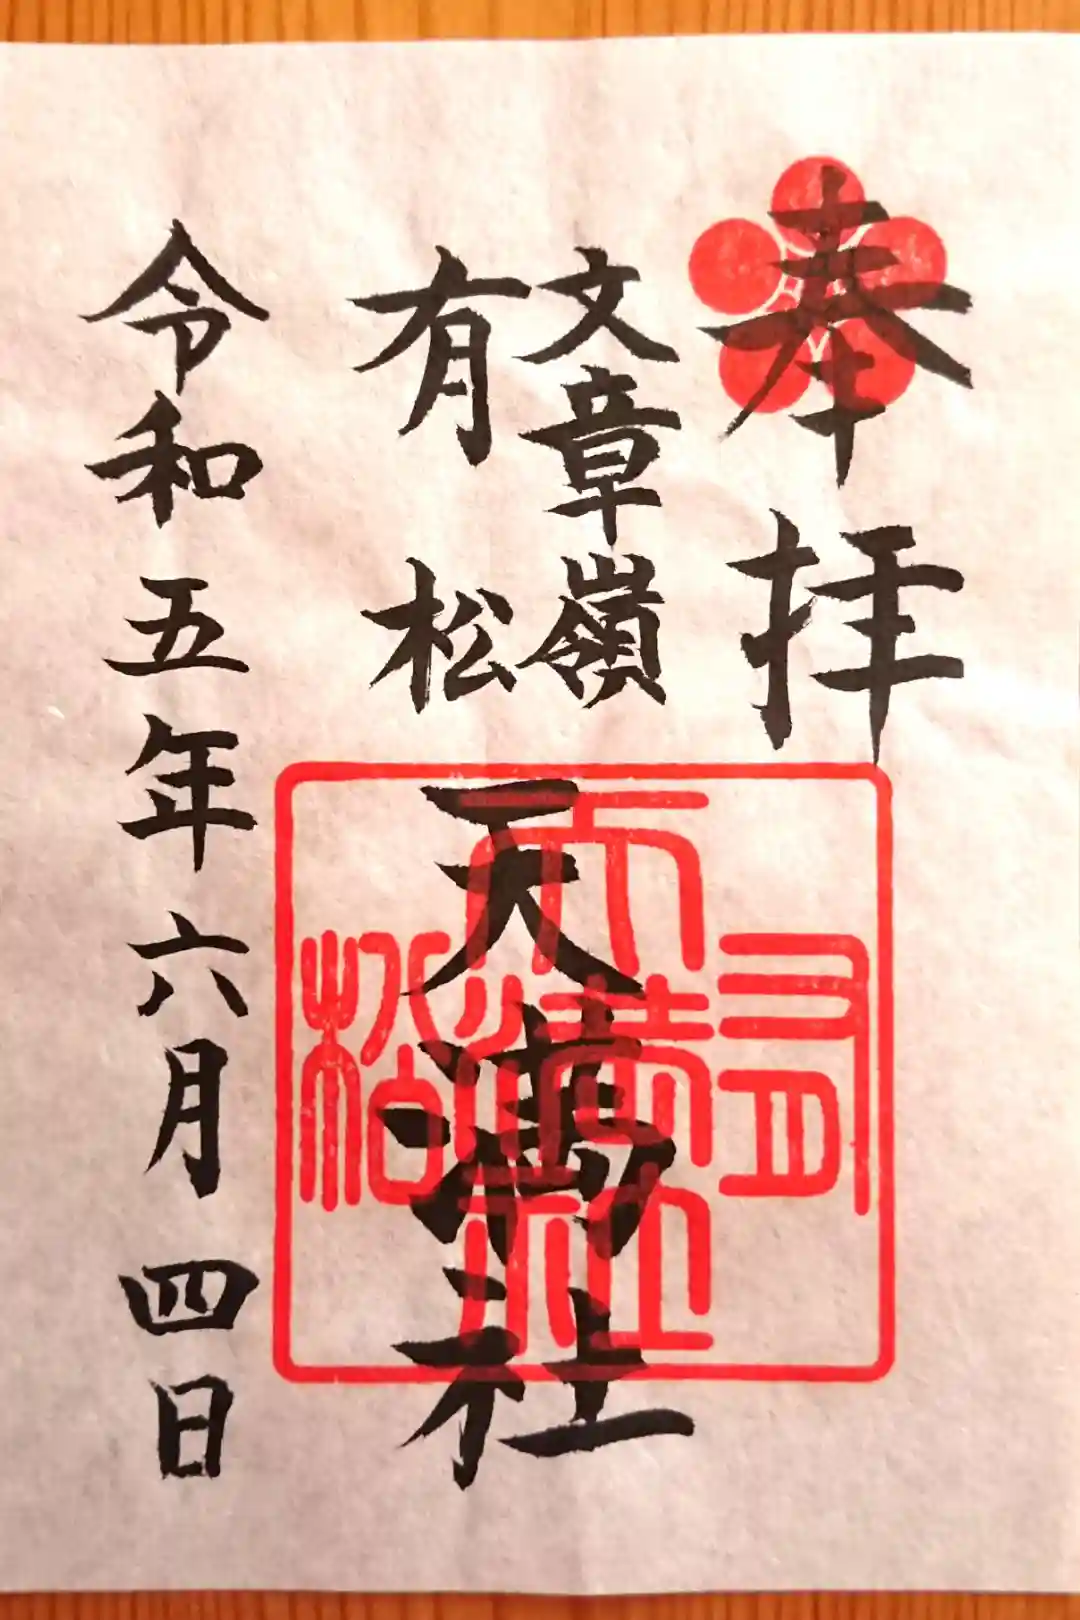 奉拝
文章嶺
有松
天満社
令和五年六月四日
有松天満社